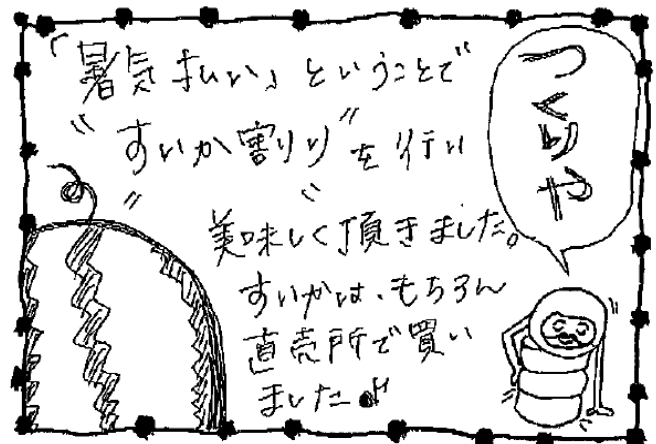 「暑気払い」ということで
"すいか割り"を行い
美味しく頂きました。
すいかは、もちろん
直売所で買い
ました♪
つくりや